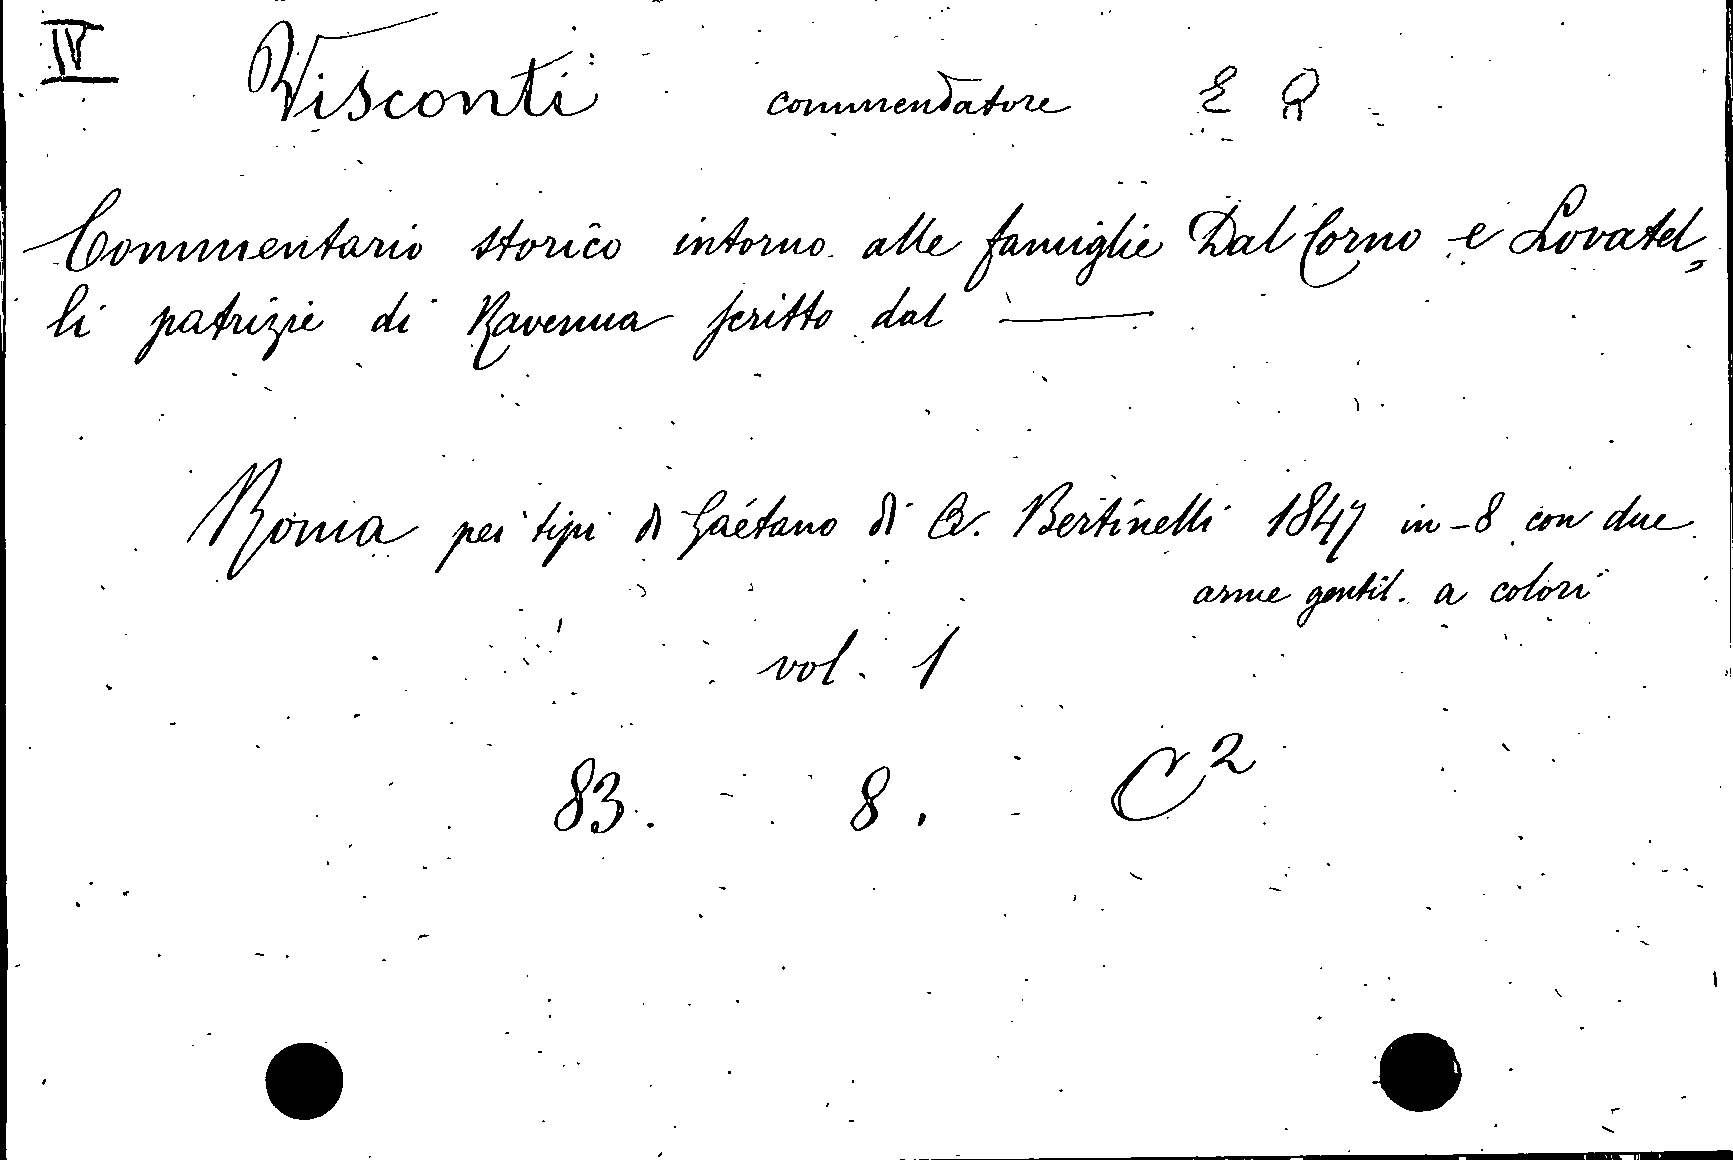 IV Visconti commendatore E Q
Commentario storico intorno alle famiglie Dal Corno e Lovatel,
li patrizie di Ravenna scritto dal ———
Roma pei tipi di Gaetano di A. Bertinelli 1847 in-8 con due
arme gentil. a colori
vol. 1
83. 8. C²